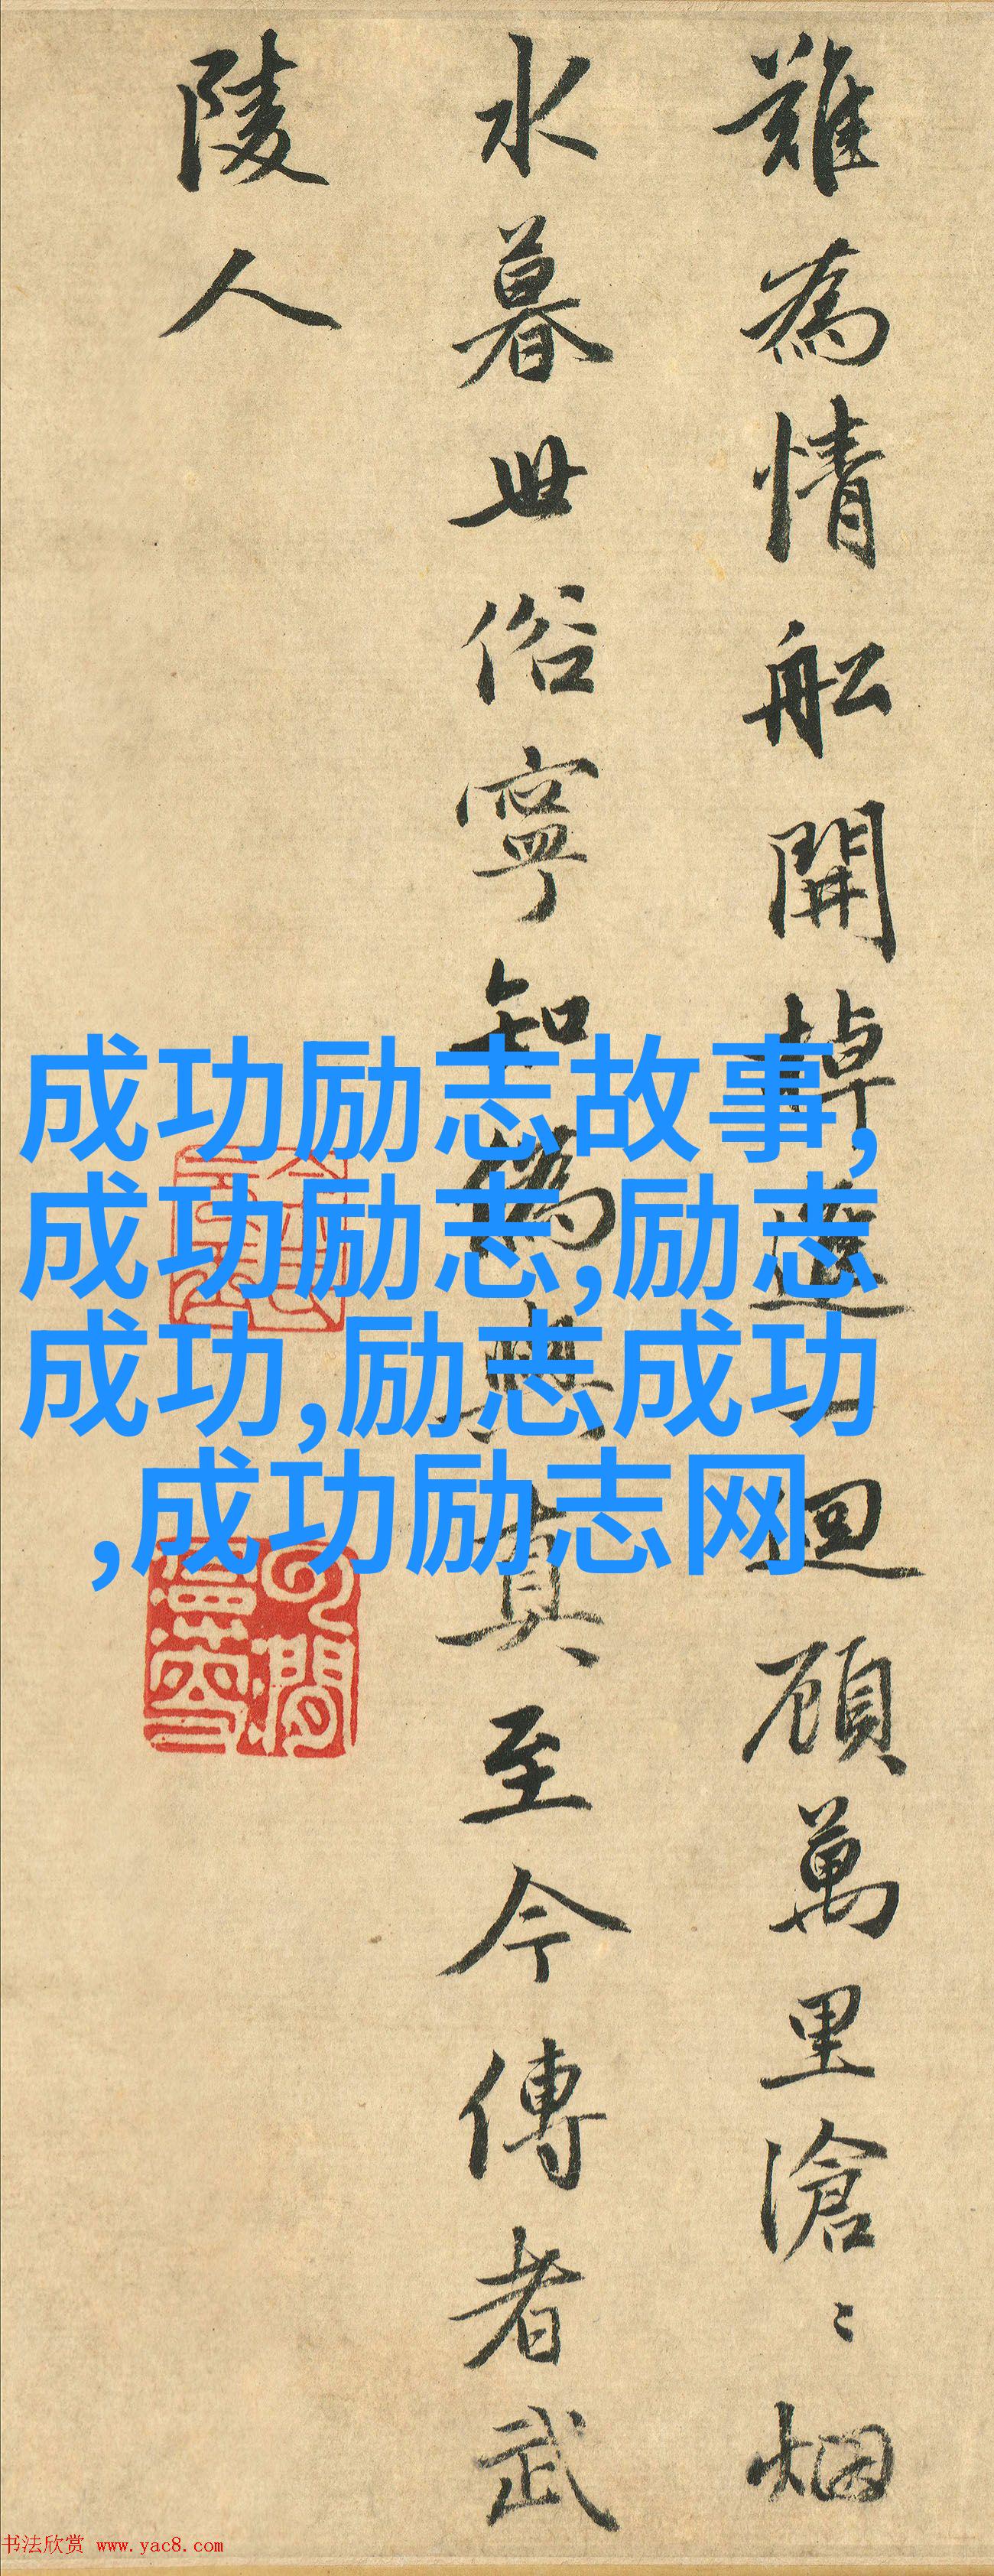 難為情船開棹進一迴顧萬里滄〻烟
水暮世俗寧知偽與真至今傳者武
陵人
成功励志故事,
成功励志,励志
成功,励志成功
,成功励志网
书法欣赏 www.yac8.com